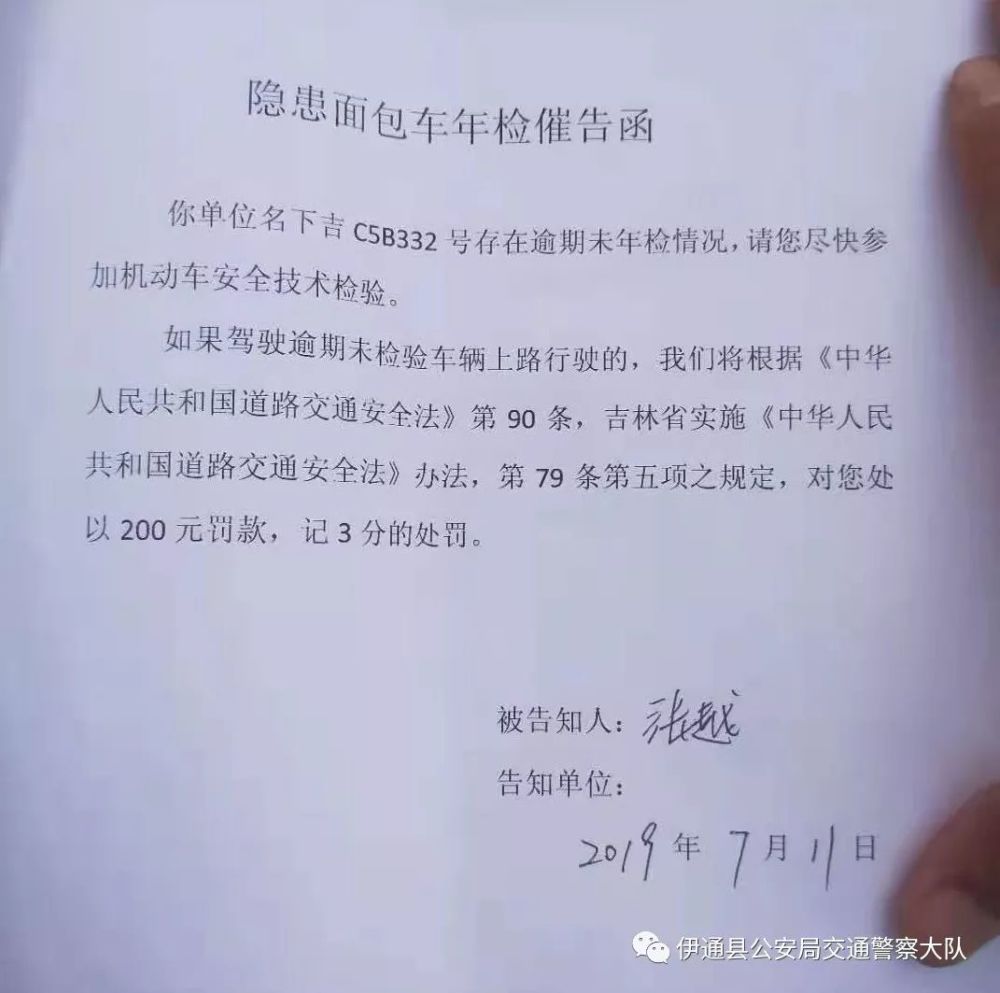 隐患面包车年检催告函
你单位名下吉 C5B332 号存在逾期未年检情况，请您尽快参
加机动车安全技术检验。
如果驾驶逾期未检验车辆上路行驶的，我们将根据《中华
人民共和国道路交通安全法》第 90 条，吉林省实施《中华人民
共和国道路交通安全法》办法，第 79 条第五项之规定，对您处
以 200 元罚款，记 3 分的处罚。
被告知人：张越
告知单位：
2019 年 7 月 11 日
伊通县公安局交通警察大队